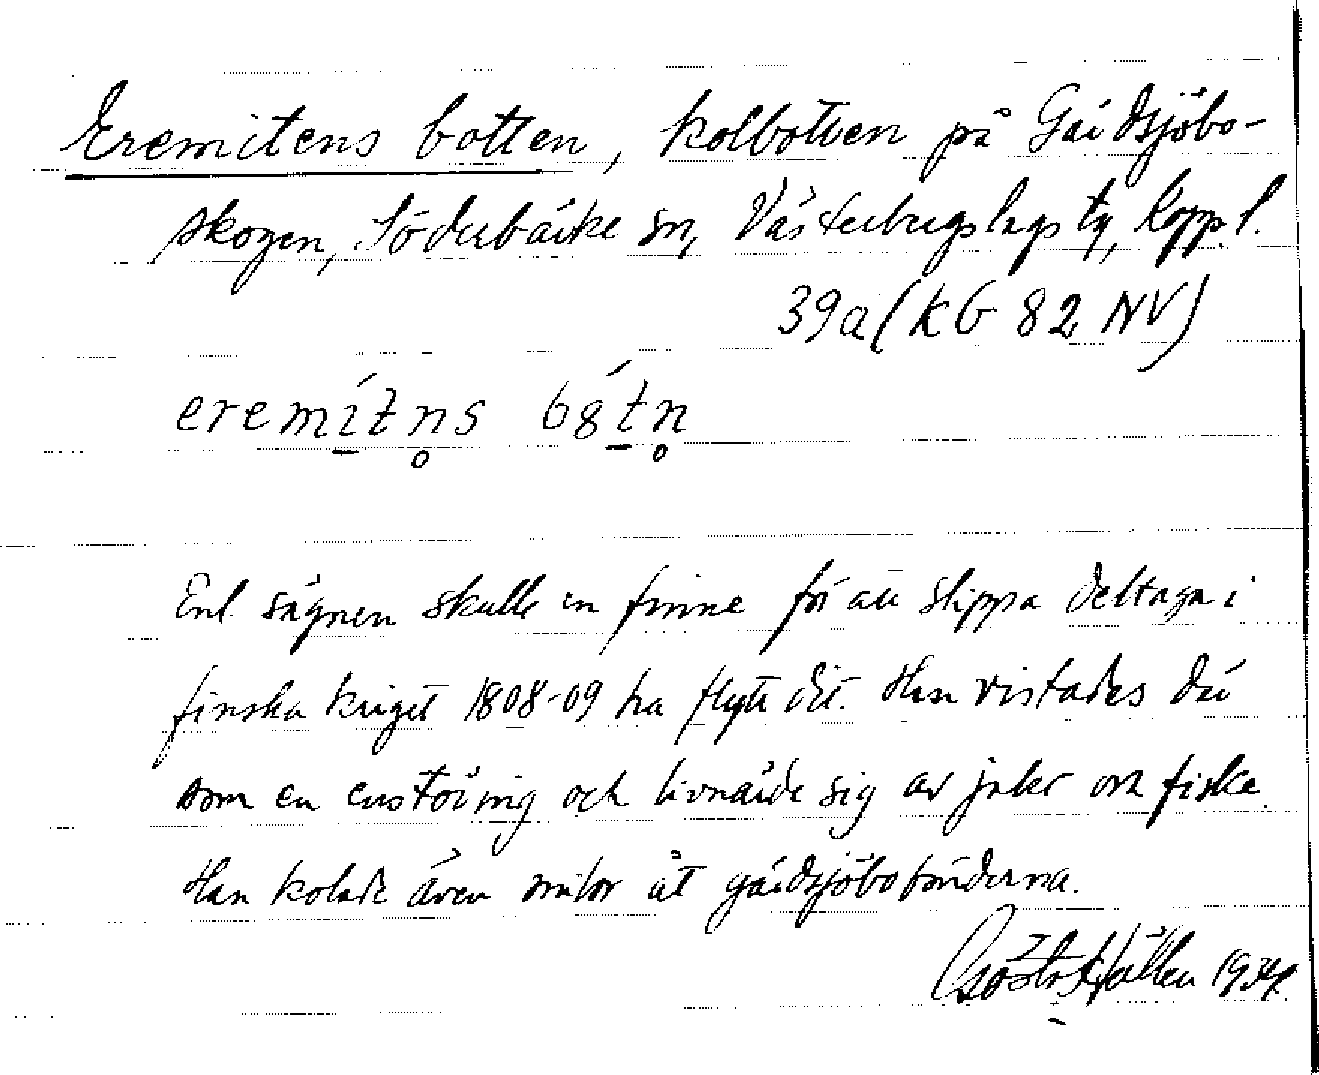 Eremitens botten, kolbotten på Gärdsjöbo-
skogen, Söderbärke sn, Västerbergslags tg, Kopp. l.
39a (KG 82 NV)
eremítn̥s bȣtn̥
Enl sägnen skulle en finne för att slippa deltaga i
finska kriget 1808-09 ha flytt dit. Han vistades där
som en enstöring och livnärde sig av jakt och fiske.
Han kolade även milor åt gärdsjöbobönderna.
Gösta Källén 1934.